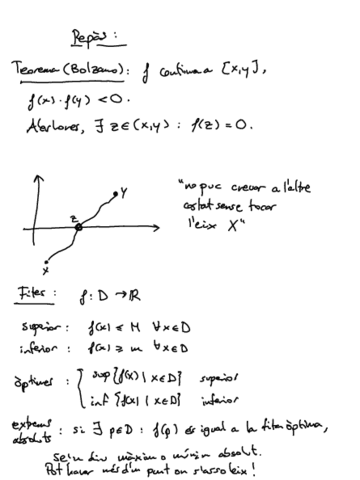 Repàs:
Teorema (Bolzano): f contínua a [x,y],
f(x)·f(y) < 0.
Aleshores, ∃ z ∈ (x,y) : f(z) = 0.
Y
z
x
"no puc creuar a l'altre
costat sense tocar
l'eix X"
Fites: f: D → ℝ
superior: f(x) ≤ M ∀x∈D
inferior: f(x) ≥ m ∀x∈D
òptimes: { sup {f(x) | x∈D} superior
inf {f(x) | x∈D} inferior
extrems absoluts: si ∃ p∈D : f(p) és igual a la fita òptima,
se'n diu màxim o mínim absolut.
Pot haver més d'un punt on s'assoleix!